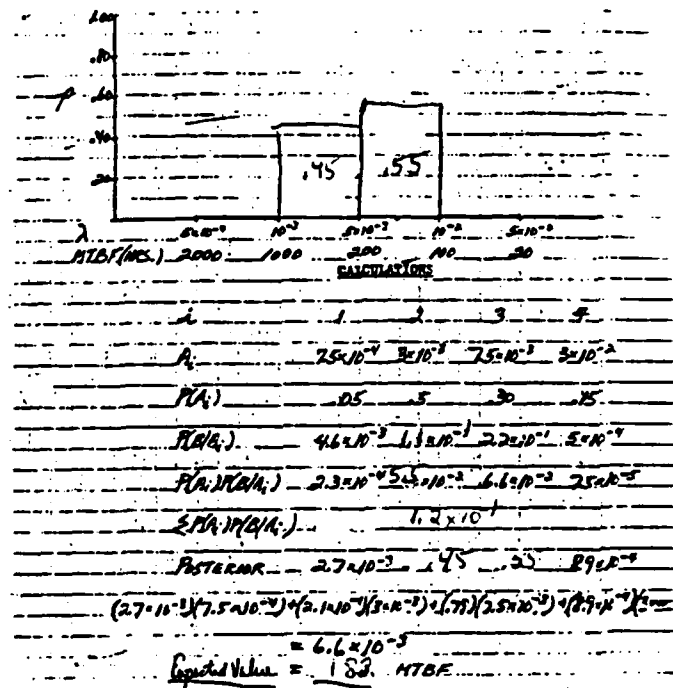 1.00
.80
P .60
.40
.20
.45 .55
λ 5×10⁻⁴ 10⁻³ 5×10⁻³ 10⁻² 5×10⁻²
MTBF(HRS.) 2000 1000 200 100 20
CALCULATIONS
i 1 2 3 4
Aᵢ 7.5×10⁻⁴ 3×10⁻³ 7.5×10⁻³ 3×10⁻²
P(Aᵢ) .05 .5 .30 .15
P(B/Aᵢ) 4.6×10⁻³ 1.1×10⁻¹ 2.2×10⁻¹ 5×10⁻⁴
P(Aᵢ)P(B/Aᵢ) 2.3×10⁻⁴ 5.5×10⁻² 6.6×10⁻² 7.5×10⁻⁵
ΣP(Aᵢ)P(B/Aᵢ) 1.2×10⁻¹
POSTERIOR 2.7×10⁻³ .45 .55 8.9×10⁻⁴
(2.7×10⁻³)(7.5×10⁻⁴)+(2.1×10⁻¹)(3×10⁻³)+(.79)(7.5×10⁻³)+(8.9×10⁻⁴)
= 6.6×10⁻³
Expected Value = 152. MTBF